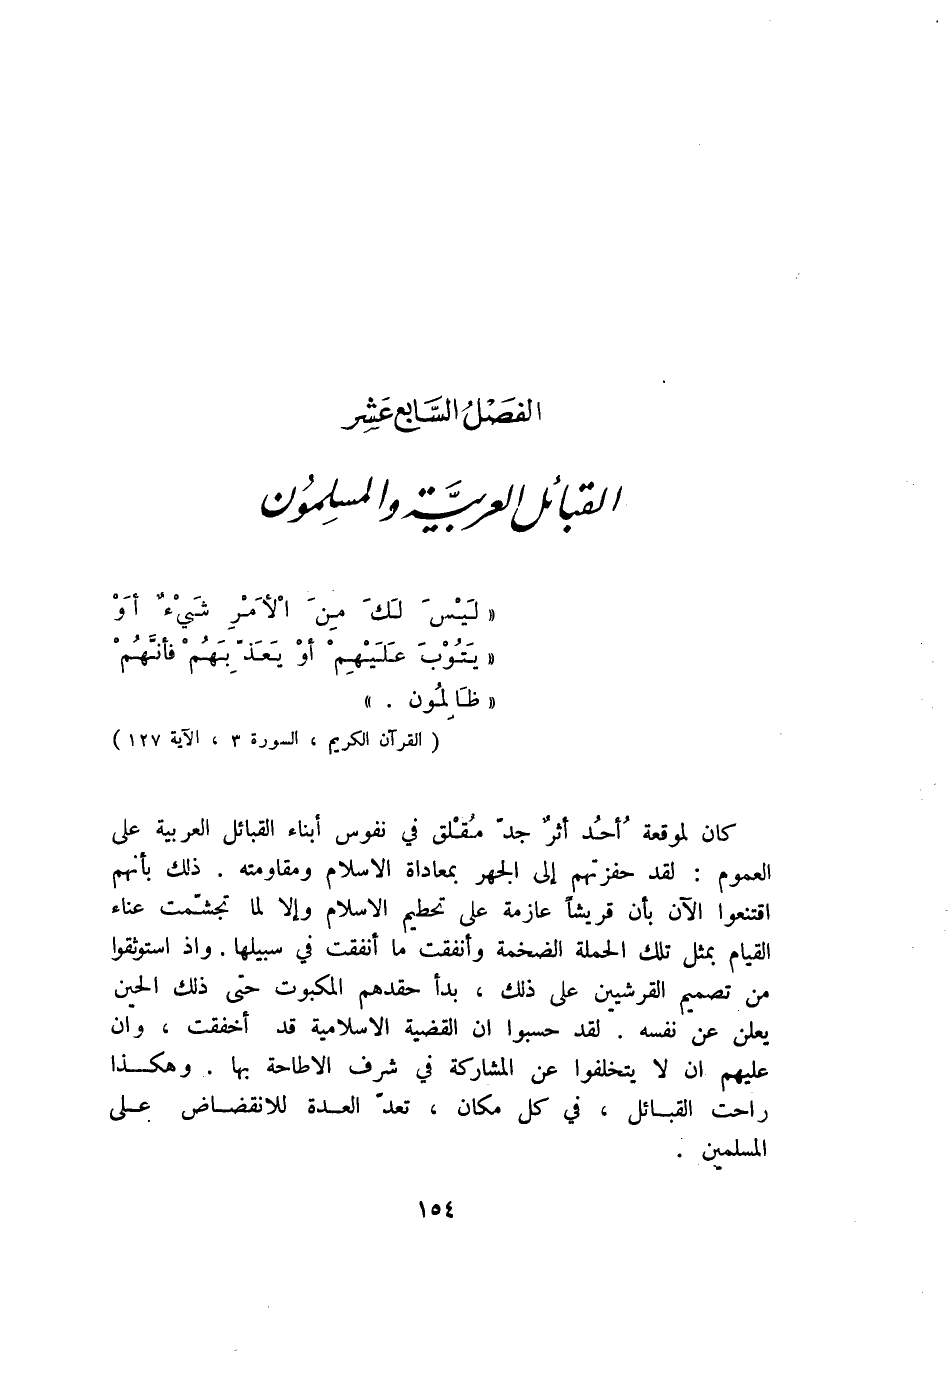 الفَصْلُ السَّابع عَشِر
القبائل العربيَّة والمسلِمُون
« لَيْسَ لَكَ مِنَ الْأَمْرِ شَيْءٌ أَوْ
« يَتُوْبَ عَلَيْهِمْ أوْ يُعَذِّبَهُمْ فأنَّهُمْ
« ظَالِمُون . »
( القرآن الكريم ، السورة ٣ ، الآية ١٢٧ )
كان لموقعة أُحُد أثرٌ جدّ مُقْلق في نفوس أبناء القبائل العربية على
العموم : لقد حفزتهم إلى الجهر بمعاداة الاسلام ومقاومته . ذلك بأنهم
اقتنعوا الآن بأن قريشاً عازمة على تحطيم الاسلام وإلا لما تجشّمت عناء
القيام بمثل تلك الحملة الضخمة وأنفقت ما أنفقت في سبيلها . واذ استوثقوا
من تصميم القرشيين على ذلك ، بدأ حقدهم المكبوت حتّى ذلك الحين
يعلن عن نفسه . لقد حسبوا ان القضية الاسلامية قد أخفقت ، وان
عليهم ان لا يتخلفوا عن المشاركة في شرف الاطاحة بها . وهكـذا
راحت القبـائل ، في كل مكان ، تعدّ العـدة للانقضـاض عـلى
المسلمين .
١٥٤